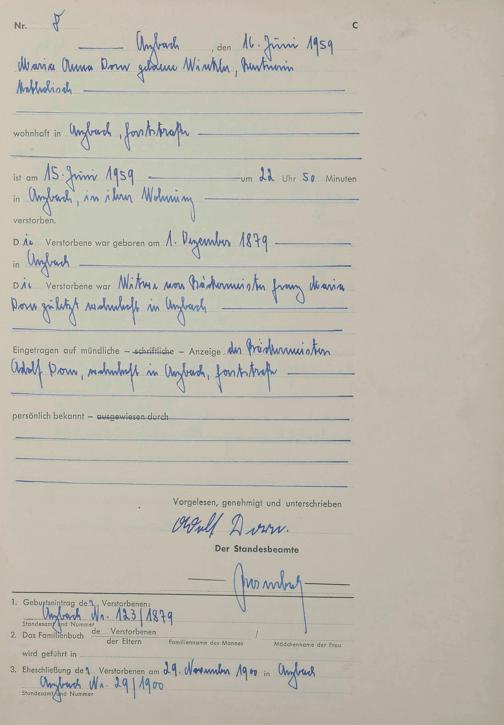 Nr. 8 C
Anzbach, den 16. Juni 1959
Maria Anna Dorn geborene Winkler, Rentnerin
Katholisch
wohnhaft in Anzbach, Forststraße
ist am 15. Juni 1959 um 22 Uhr 50 Minuten
in Anzbach, in ihrer Wohnung
verstorben.
Die Verstorbene war geboren am 1. Dezember 1879
in Anzbach
Die Verstorbene war Witwe von Bäckermeister Franz Maria
Dorn zuletzt wohnhaft in Anzbach
Eingetragen auf mündliche – schriftliche – Anzeige des Bäckermeisters
Adolf Dorn, wohnhaft in Anzbach, Forststraße
persönlich bekannt – ausgewiesen durch
Vorgelesen, genehmigt und unterschrieben
Adolf Dorn.
Der Standesbeamte
1. Geburtseintrag der Verstorbenen:
Anzbach Nr. 123/1879
Standesamt und Nummer
2. Das Familienbuch de Verstorbenen / der Eltern
Familienname des Mannes / Mädchenname der Frau
wird geführt in
3. Eheschließung der Verstorbenen am 29. November 1900 in Anzbach
Anzbach Nr. 29/1900
Standesamt und Nummer